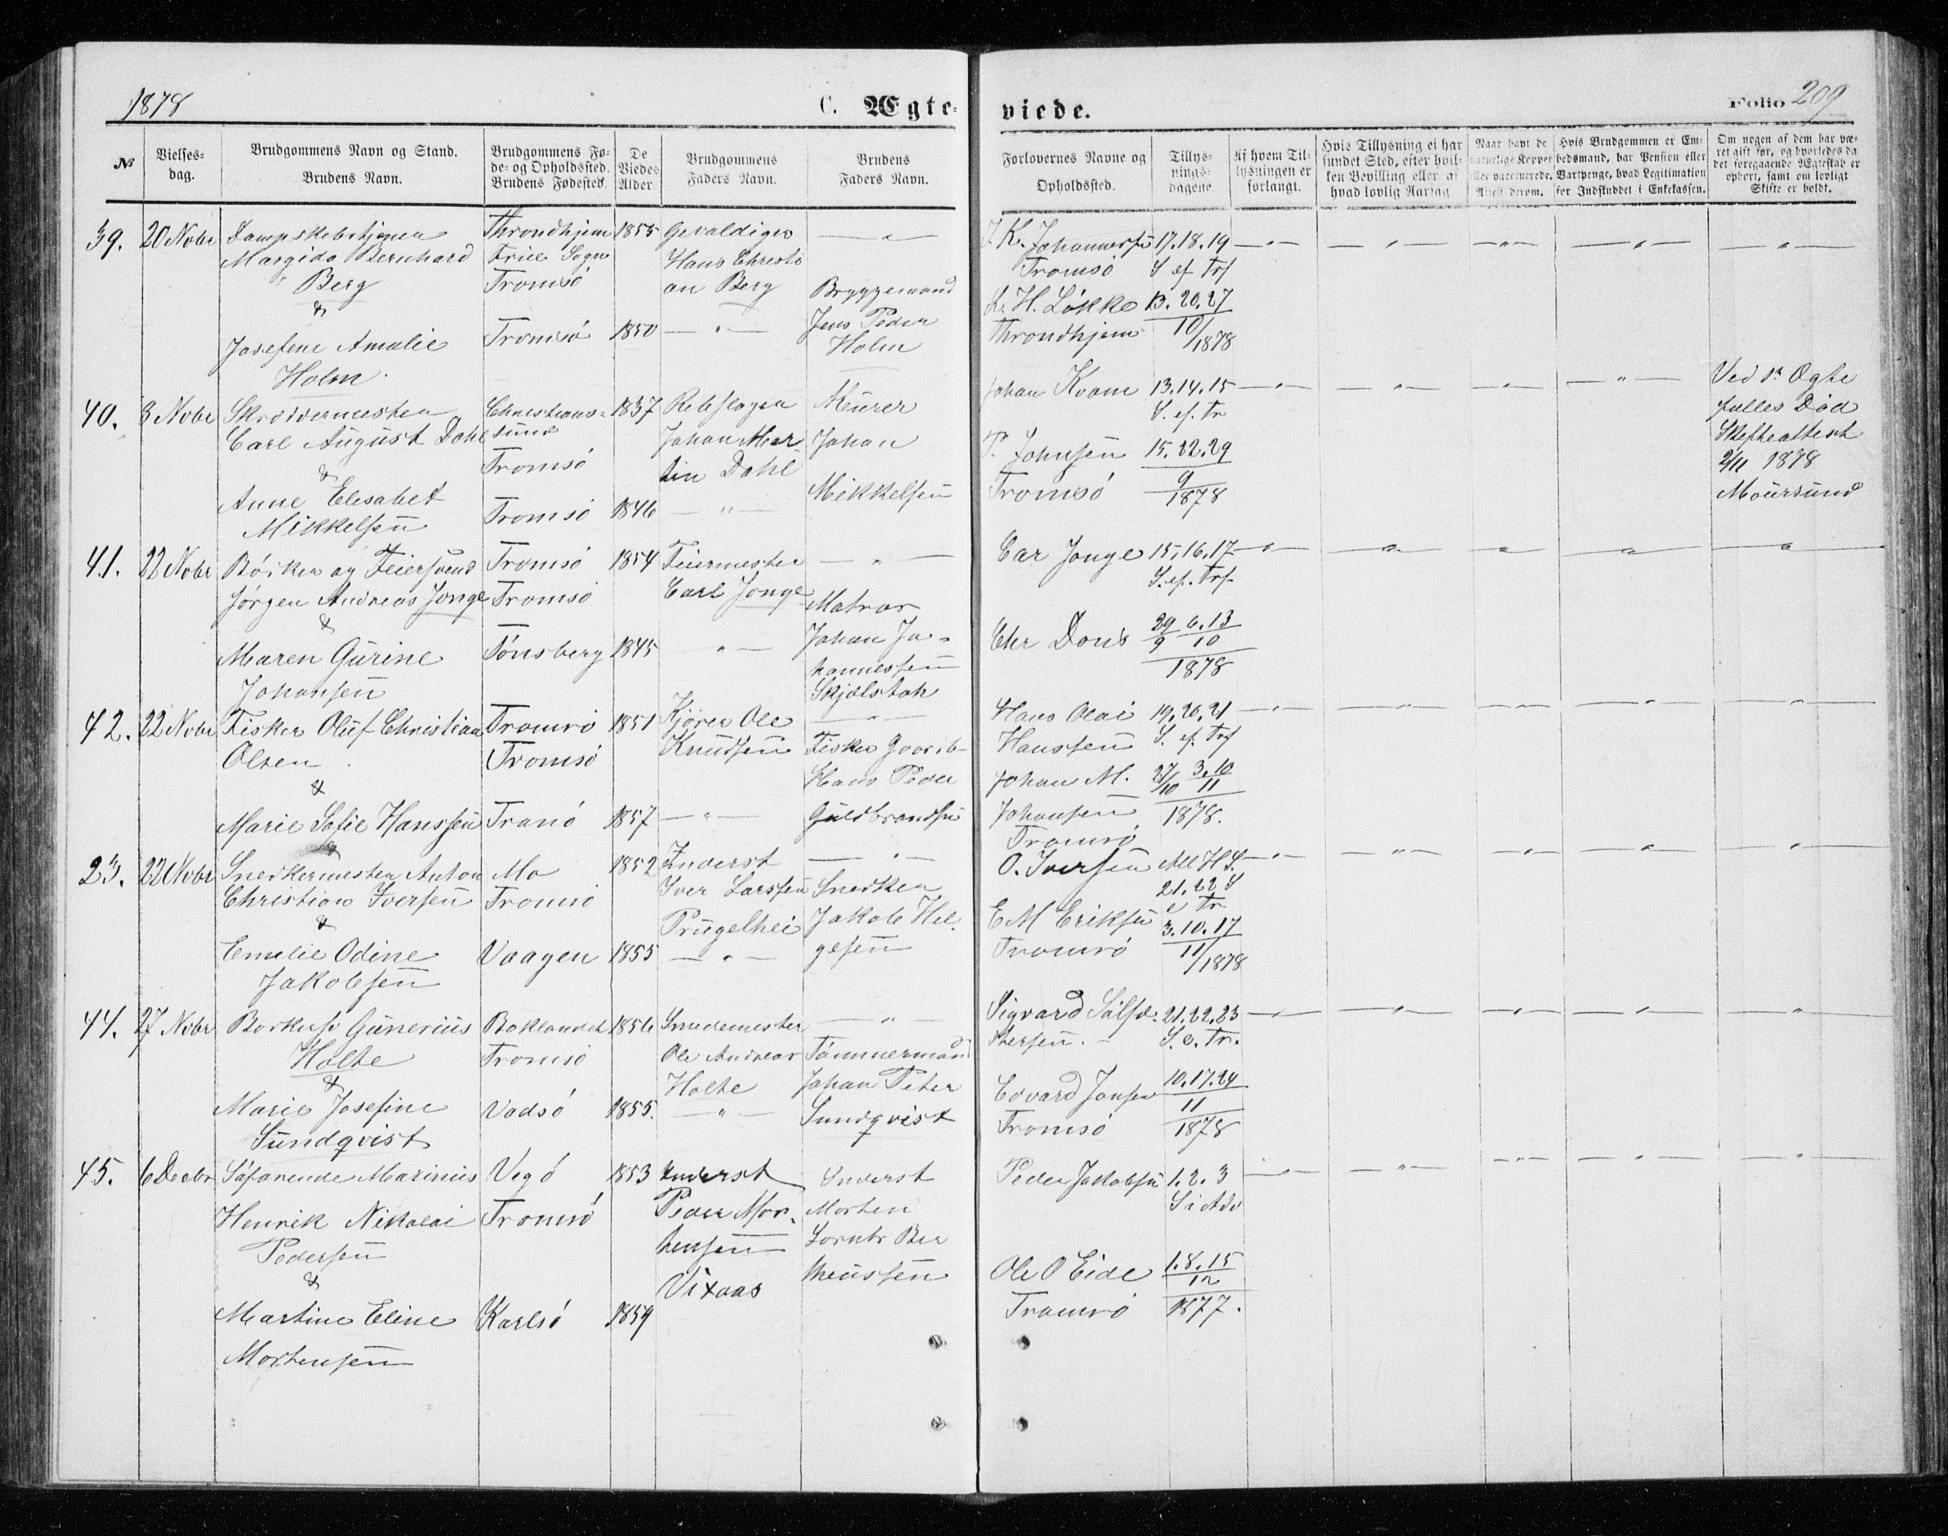 1878
C. Ægte-
viede.
Folio 209
№
Vielses-
dag.
Brudgommens Navn og Stand.
Brudens Navn.
Brudgommens Fø-
de- og Opholdssted.
Brudens Fødested.
De
Viedes
Alder.
Brudgommens
Faders Navn.
Brudens
Faders Navn.
Forlovernes Navne og
Opholdssted.
Tillys-
nings-
dagene
Af hvem Til-
lysningen er
forlangt.
Hvis Tillysning ei har
fundet Sted, efter hvil-
ken Bevilling eller af
hvad lovlig Aarsag
Naar havt de
naturlige Kopper
eller vaccinerede.
Attest derom.
Hvis Brudgommen er Em-
bedsmand, har Pension eller
Vartpenge, hvad Legitimation
for Indskuddet i Enkekassen.
Om nogen af dem har væ-
ret gift før, og hvorledes da
det foregaaende Ægteskab er
ophørt, samt om lovligt
Skifte er holdt.
39. 20 Nobr
Margido Bernhard
Berg
&
Josefine Amalie
Holm.
Throndhjem
Frue Sogn
Tromsø
Tromsø
1855
1850
Gevaldiger
Hans Christi
an Berg
Bryggemand
Jens Peder
Holm
J. K. Johannesen
Tromsø
L. H. Løkke
Throndhjem
17.18.19
S. ef. Trf
13.20.27
10/1878
40. 8 Nobr
Skreddermester
Carl August Dahl
&
Anne Elisabet
Mikkelsen
Christians-
sund
Tromsø
Tromsø
1837
1846
Rebslager
Johan Mar
tin Dahl
Murer
Johan
Mikkelsen
Johan Kvam
P. Johnsen
Tromsø
13.14.15
S. ef. Tr
15.22.29
9
1878
Ved 1ste Ægte
fælles Død
Skifteattest
2/11 1878
Moursund
41. 22 Nobr
Bødker og Feiersvend
Jørgen Andreas Jonge
&
Maren Gurine
Johansen
Tromsø
Tromsø
Tønsberg
1854
1845
Feiermester
Carl Jonge
Matros
Johan Jo-
hannessen
Car Jonge
Chr Dons
15.16.17
S. ef. Trf.
29/9 6.13/10
1878
42. 22 Nobr
Fisker Oluf Christian
Olsen
&
Marie Sofie Hanssen
Tromsø
Tromsø
Tranø
1851
1857
Kjører Ole
Knudsen
Fisker Gaarb-
Hans Peder
Guldbrandsen
Hans Olai
Hanssen
Johan M.
Johansen
Tromsø
19.20.21
S. ef. Trf
27/10 3.10/11
1878.
23. 22 Nobr
Snedkermester Anton
Christian Iversen
&
Emelie Odine
Jakobsen
Mo
Tromsø
Vaagen
1852
1855
Inderst
Iver Larssen
Snedker
Jakob Hel-
gesen
O. Iversen
E M Eriksen
Tromsø
21.22 S
e Tr
3.10.17
11/1878
44. 27 Nobr
Gunerius
Holte
&
Marie Josefine
Sundqvist
Baklandet
Tromsø
Vadsø
1856
1855.
Smedemester
Ole Andreas
Holte
Tømmermand
Johan Peter
Sundqvist
Sigvard
Edvard Jansen
Tromsø
21.22.23
S. e. Tr.
10.17.24
11
1878
45. 6 Decbr
Søfarende Marinius
Henrik Nikolai
Pedersen
&
Martine Eline
Mortensen
Vegø
Tromsø
Karlsø
1853
1859
Inderst
Peder Mor-
tensen
Inderst
Morten
Peder Jakobsen
Ole O Eide
Tromsø
1.2.3
S i Adv
1.8.15
12
1877.